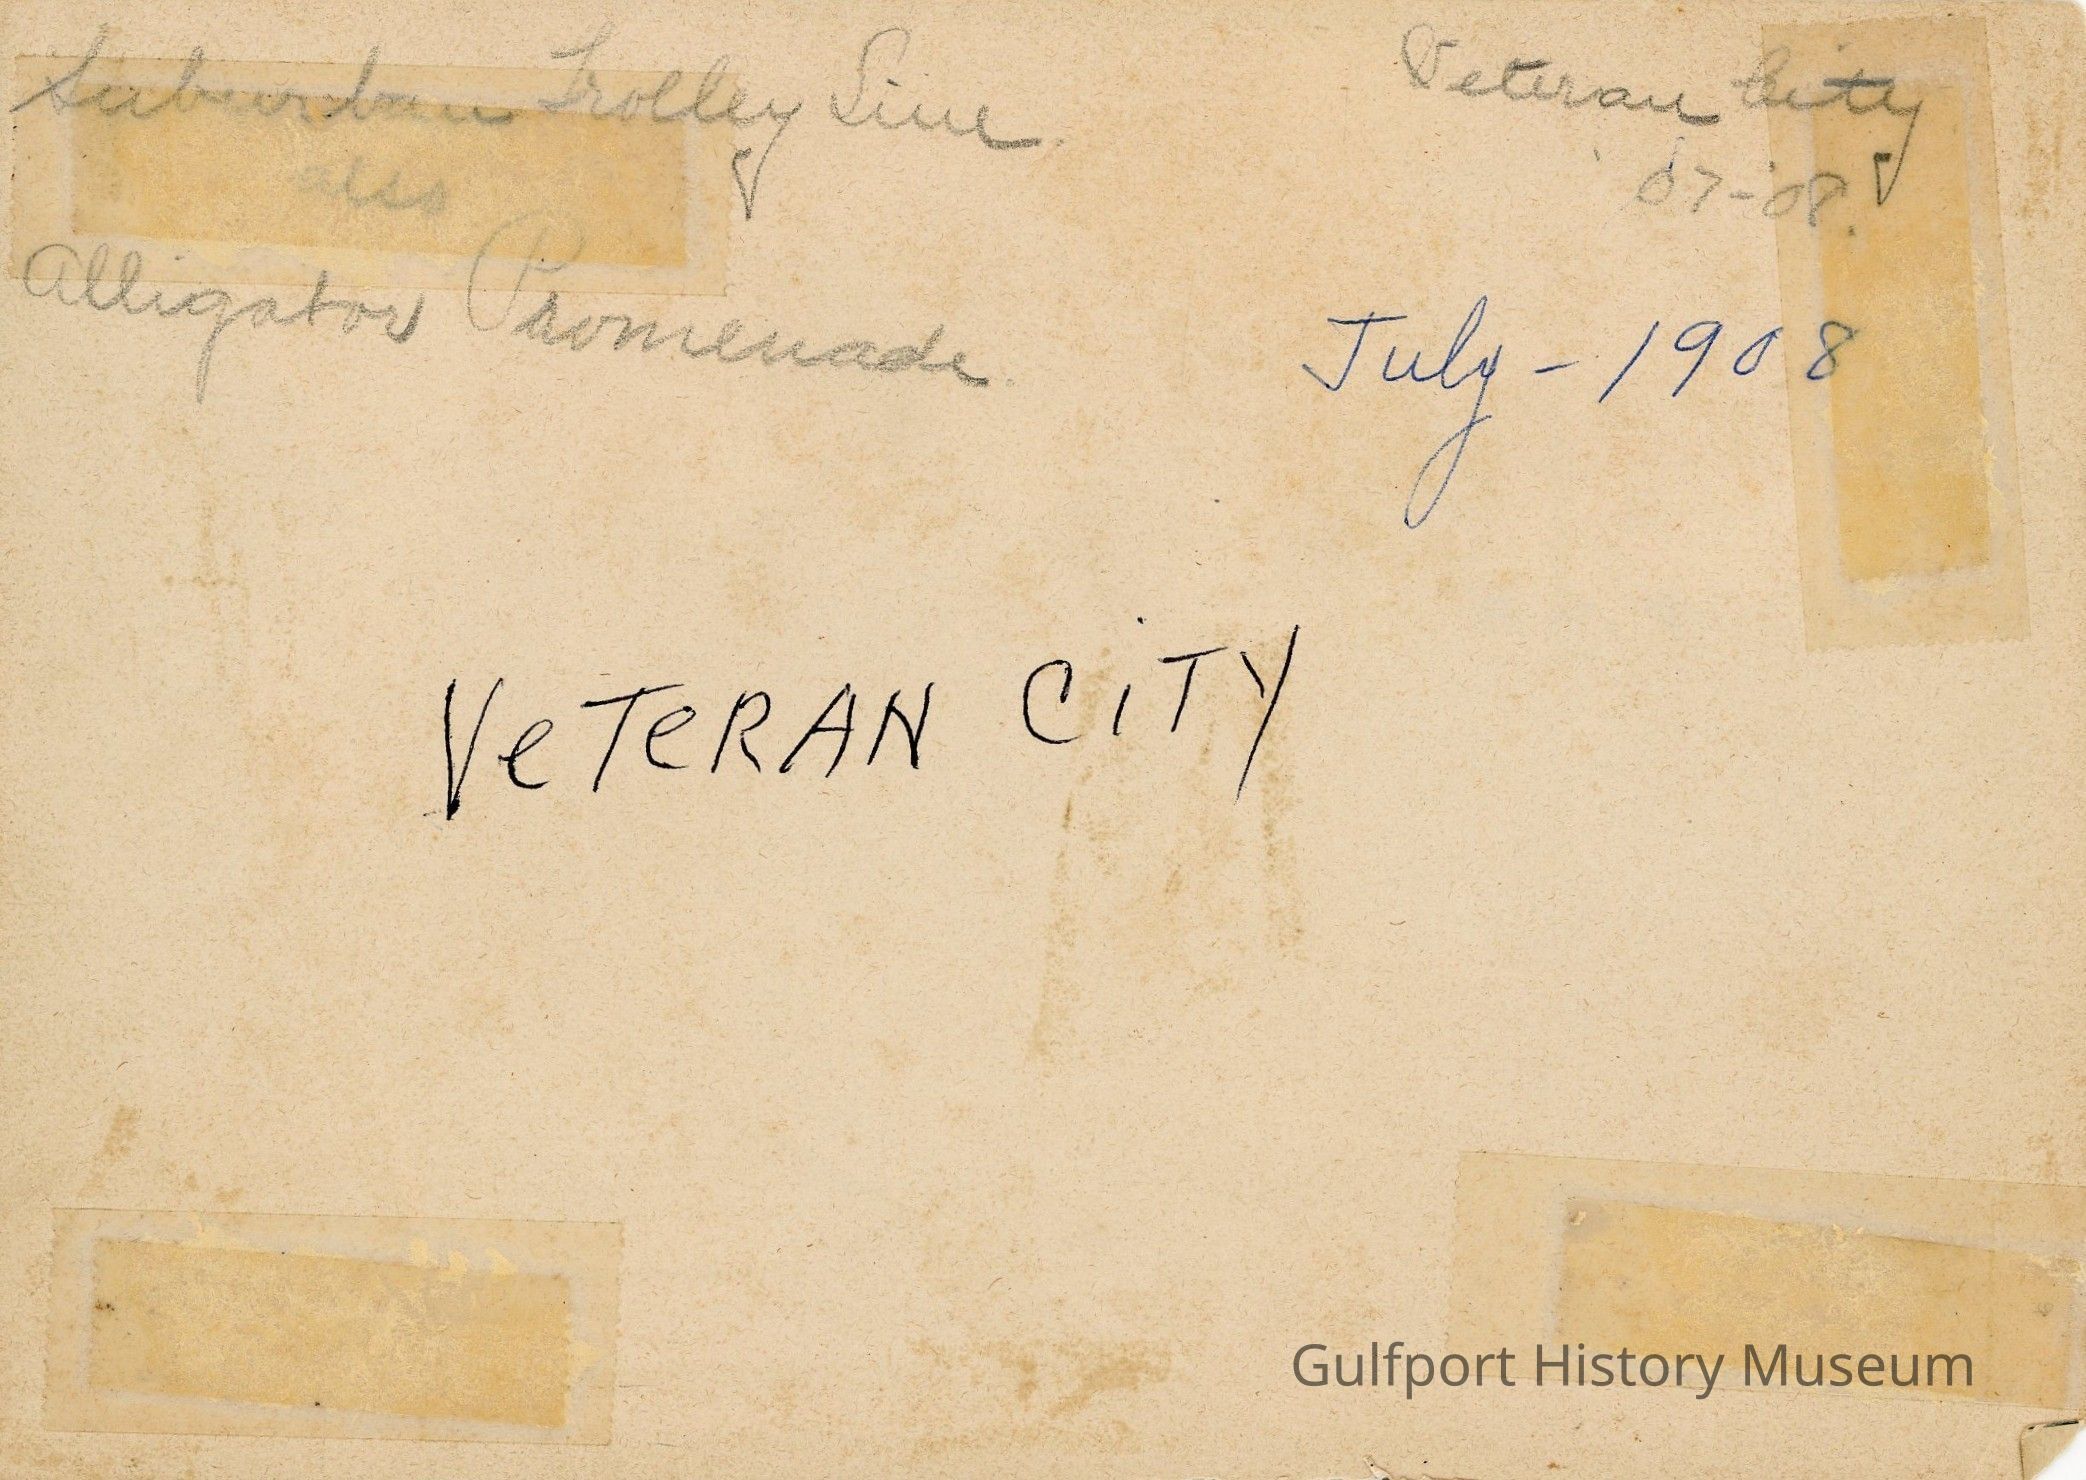 Suburban Trolley Line.
also
Alligator Promenade.
Veteran City
'07-'08.
July - 1908
VeTeRAN CiTY
Gulfport History Museum